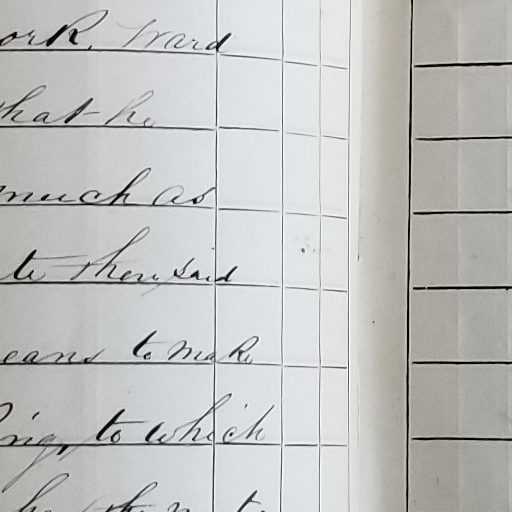 ork. Ward
that he
much as
te then said
eans to make
ing, to which